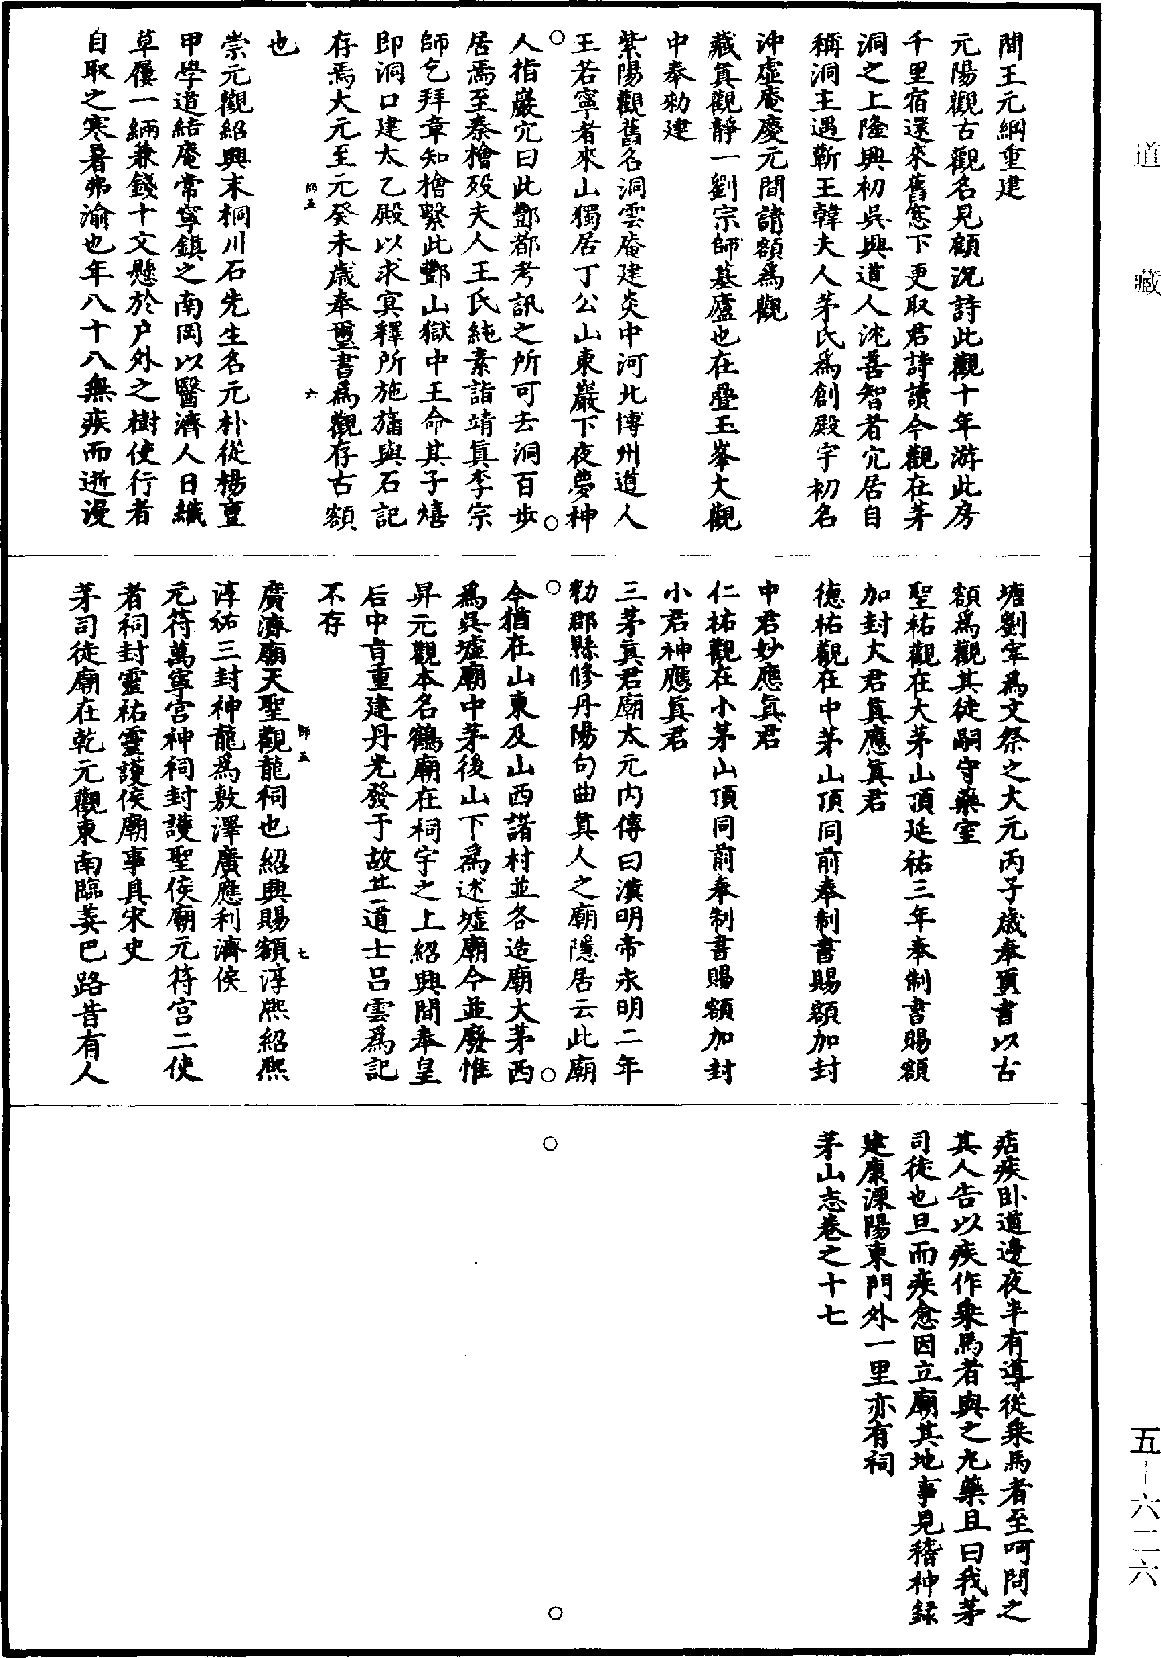 間王元綱重建
元陽觀古觀名見顧況詩此觀十年游此房
千里宿還來舊窓下更取君詩讀今觀在茅
洞之上隆興初吳興道人沈善智者穴居自
稱洞主遇蘄王韓夫人茅氏爲創殿宇初名
沖虛庵慶元間請額爲觀
藏眞觀靜一劉宗師墓廬也在疊玉峯大觀
中奉勑建
紫陽觀舊名洞雲庵建炎中河北博州道人
王若寧者來山獨居丁公山東巖下夜夢神
人指巖穴曰此酆都考訊之所可去洞百步
居焉至秦檜歿夫人王氏純素詣靖眞李宗
師乞拜章知檜繫此酆山獄中王命其子熺
即洞口建太乙殿以求冥釋所施旛與石記
存焉大元至元癸未歲奉璽書爲觀存古額
也
崇元觀紹興末桐川石先生名元朴從楊重
甲學道結庵常寧鎮之南岡以醫濟人日織
草屨一緉兼錢十文懸於户外之樹使行者
自取之寒暑弗渝也年八十八無疾而逝漫
塘劉宰爲文祭之大元丙子歲奉璽書以古
額爲觀其徒嗣守藥室
聖祐觀在大茅山頂延祐三年奉制書賜額
加封大君眞應眞君
德祐觀在中茅山頂同前奉制書賜額加封
中君妙應眞君
仁祐觀在小茅山頂同前奉制書賜額加封
小君神應眞君
三茅眞君廟太元内傳曰漢明帝永明二年
勑郡縣修丹陽句曲眞人之廟隱居云此廟
今猶在山東及山西諸村並各造廟大茅西
爲吳墟廟中茅後山下爲述墟廟今並廢惟
昇元觀本名鶴廟在祠宇之上紹興間奉皇
后中旨重建丹光發于故廿道士呂雲爲記
不存
廣濟廟天聖觀龍祠也紹興賜額淳熙紹熙
淳祐三封神龍爲敷澤廣應利濟侯
元符萬寧宮神祠封護聖侯廟元符宮二使
者祠封靈祐靈護侯廟事具宋史
茅司徒廟在乾元觀東南臨姜巴路昔有人
痁疾卧道邊夜半有導從乘馬者至呵問之
其人告以疾作乘馬者與之九藥且曰我茅
司徒也旦而疾愈因立廟其地事見稽神録
建康溧陽東門外一里亦有祠
茅山志卷之十七
道藏
五-六二六